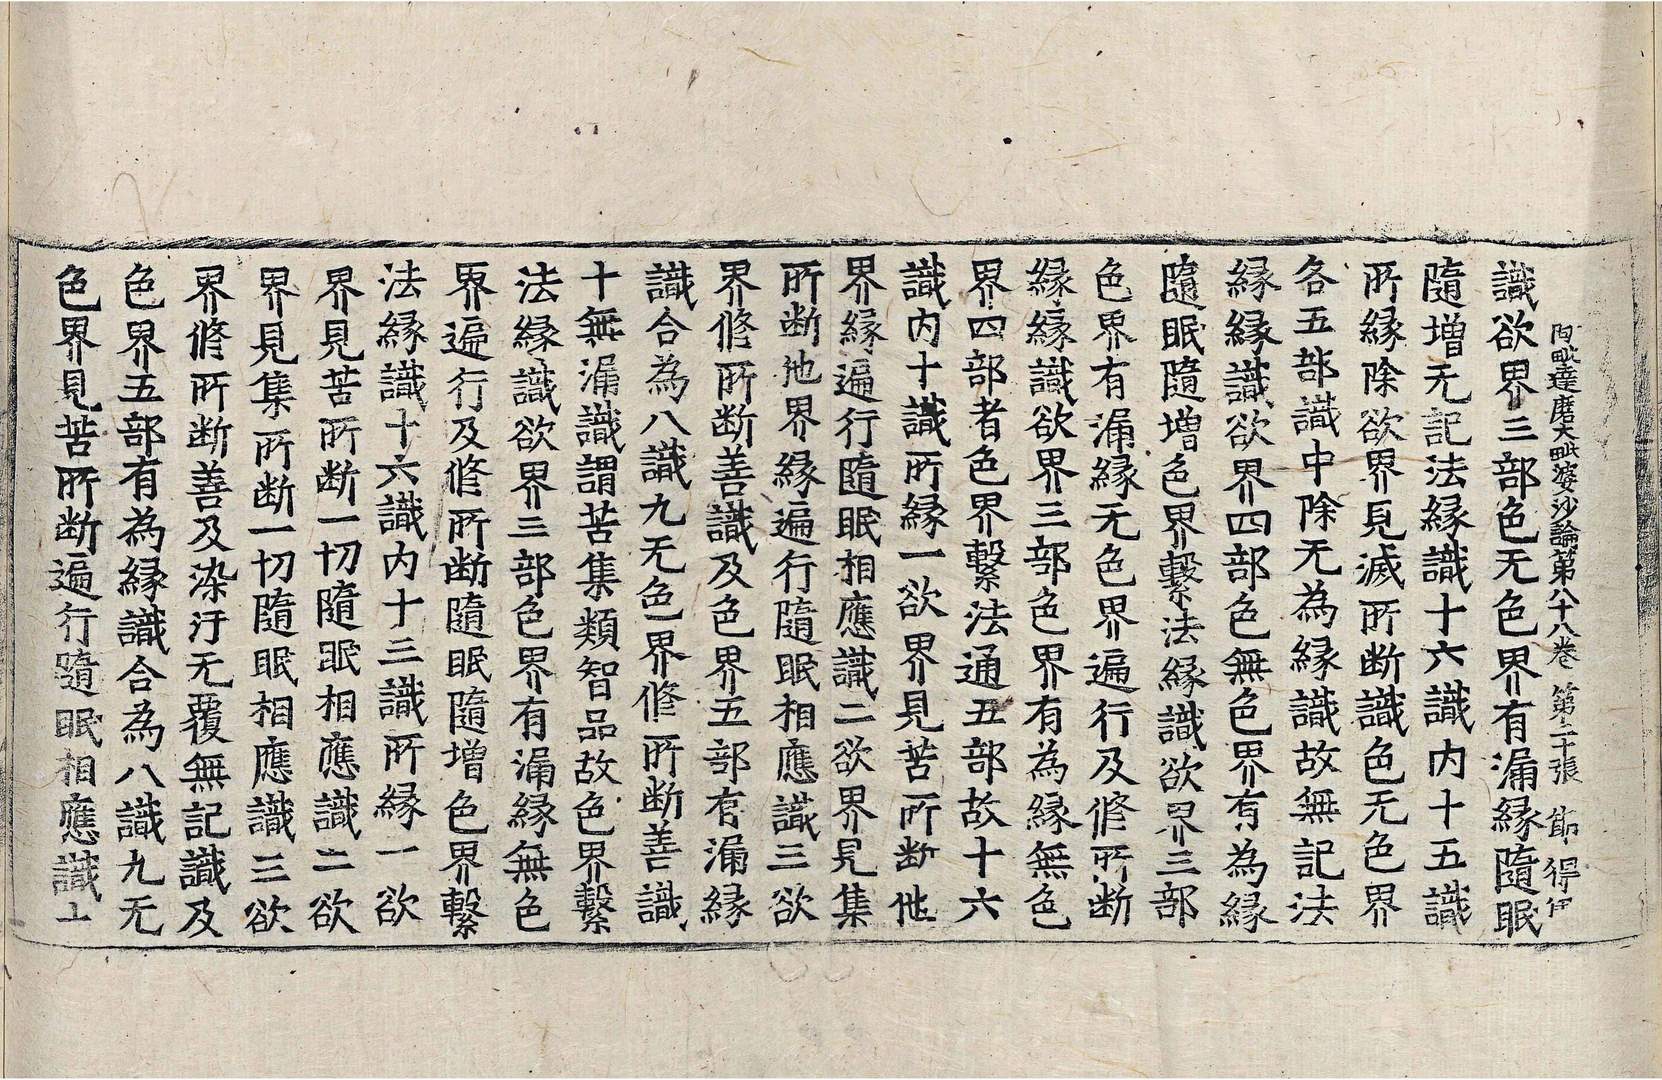 阿毗達磨大毗婆沙論第八十八卷 第二十張 得伊
識欲界三部色无色界有漏縁隨眠
隨增无記法縁識十六識内十五識
所縁除欲界見滅所断識色无色界
各五部識中除无為縁識故無記法
縁縁識欲界四部色無色界有為縁
隨眠隨增色界繫法縁識欲界三部
色界有漏縁无色界遍行及修所断
縁縁識欲界三部色界有為縁無色
界四部者色界繫法通五部故十六
識内十識所縁一欲界見苦所断他
界縁遍行隨眠相應識二欲界見集
所断他界縁遍行隨眠相應識三欲
界修所断善識及色界五部有漏縁
識合為八識九无色界修所断善識
十無漏識謂苦集類智品故色界繫
法縁識欲界三部色界有漏縁無色
界遍行及修所断隨眠隨增色界繫
法縁識十六識内十三識所縁一欲
界見苦所断一切隨眠相應識二欲
界見集所断一切隨眠相應識三欲
界修所断善及染汙无覆無記識及
色界五部有為縁識合為八識九无
色界見苦所断遍行隨眠相應識十